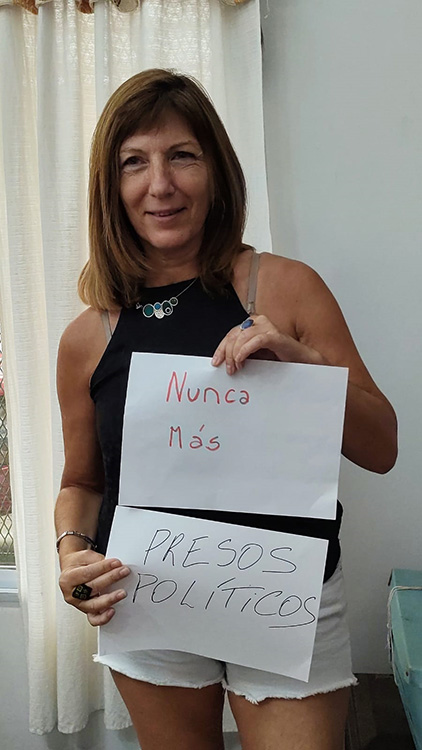 Nunca
Más
PRESOS
POLÍTICOS